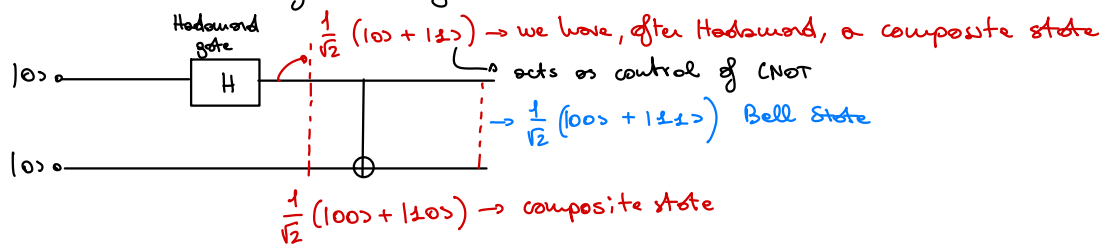 Hadamard gate
1/√2 (|0> + |1>) → we have, after Hadamard, a composite state
|0>
H
↳ acts as control of CNOT
→ 1/√2 (|00> + |11>) Bell state
|0>
1/√2 (|00> + |10>) → composite state